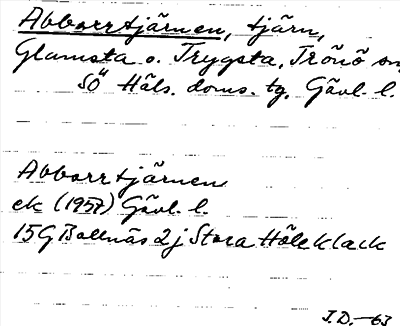 Abborrtjärnen, tjärn,
Glamsta o. Trygsta, Trönö sn,
SÖ Häls. doms. tg, Gävl. l.
Abborrtjärnen
ek (1957) Gävl. l.
15G Bollnäs 2j Stora Höleklack
J.D. -63